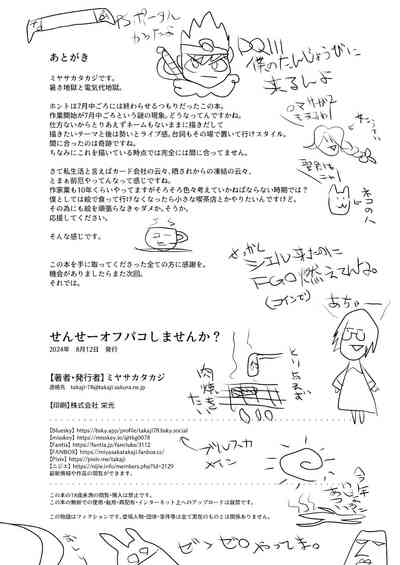 PSポータル
かったよ
DQIII
僕のたんじょうびに
あとがき
ミヤサカタカジです。
暑さ地獄と電気代地獄。
ホントは7月中ごろには終わらせるつもりだったこの本。
作業開始が7月中ごろという謎の現象。どうなってんですかね。
仕方ないからとりあえずネームもないままに描きだして
描きたいテーマと後は勢いとライブ感。台詞もその場で置いて行けスタイル。
間に合ったのは奇跡ですね。
ちなみにこれを描いている時点では完全には間に合ってません。
さて私生活と言えばカード会社の云々、晒されからの凍結の云々。
とまぁ前厄やってんなって感じですね。
作家業も10年くらいやってますがそろそろ色々考えていかねばならない時期では?
僕としては絵で食って行けなくなったら小さな喫茶店とかやりたいんですけど。
その為にも絵を頑張らなきゃダメか。そうか。
応援してください。
そんな感じです。
ネコの人
この本を手に取ってくださった全ての方に感謝を。
機会がありましたらまた次回。
それでは。
FGO燃えてんね。
あちゃー
せんせーオフパコしませんか?
2024年 8月12日 発行
【著者・発行者】ミヤサカタカジ
takaji-78@takaji.sakura.ne.jp
【印刷】株式会社 栄光
とりあえず
肉焼きたい
【Bluesky】 https://bsky.app/profile/takaji78.bsky.social
【Fantia】 https://fantia.jp/fanclubs/3112
【FANBOX】 https://miyasakatakaji.fanbox.cc/
【Pixiv】 https://pixiv.me/takaji
【ニジエ】 https://nijie.info/members.php?id=2129
最新情報や作品の閲覧ができます。
メイン
今年
この本の18歳未満の閲覧・購入は禁止です。
この本の無断での使用・転用・再配布・インターネット上へのアップロードは厳禁です。
この物語はフィクションです。登場人物・団体・事件等は全て実在のものとは関係ありません。
ゼンゼロやってま。